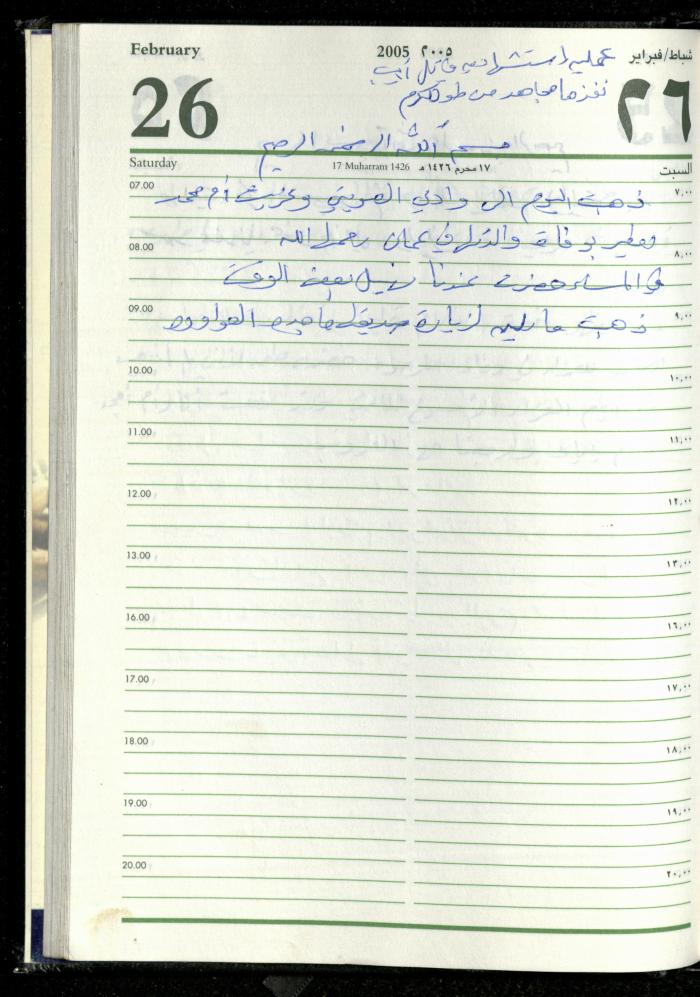 February
2005 ٢٠٠٥
شباط/فبراير
عملية استشهادية في تل أبيب
نفذها مجاهد من طولكرم
26
٢٦
بسم الله الرحمن الرحيم
Saturday
17 Muharram 1426 ١٧ محرم ١٤٢٦ هـ
السبت
07.00 ٧,٠٠
ذهبت اليوم الى وادي العويني وعزيت أم محمد
بوفاة والدتها في عمان رحمها الله
08.00 ٨,٠٠
في المساء حضرت عندنا نبيل بعض الوقت
09.00 ٩,٠٠
ذهبت مارلين لزيارة صديقتها ماجده العواوده
10.00 ١٠,٠٠
11.00 ١١,٠٠
12.00 ١٢,٠٠
13.00 ١٣,٠٠
16.00 ١٦,٠٠
17.00 ١٧,٠٠
18.00 ١٨,٠٠
19.00 ١٩,٠٠
20.00 ٢٠,٠٠